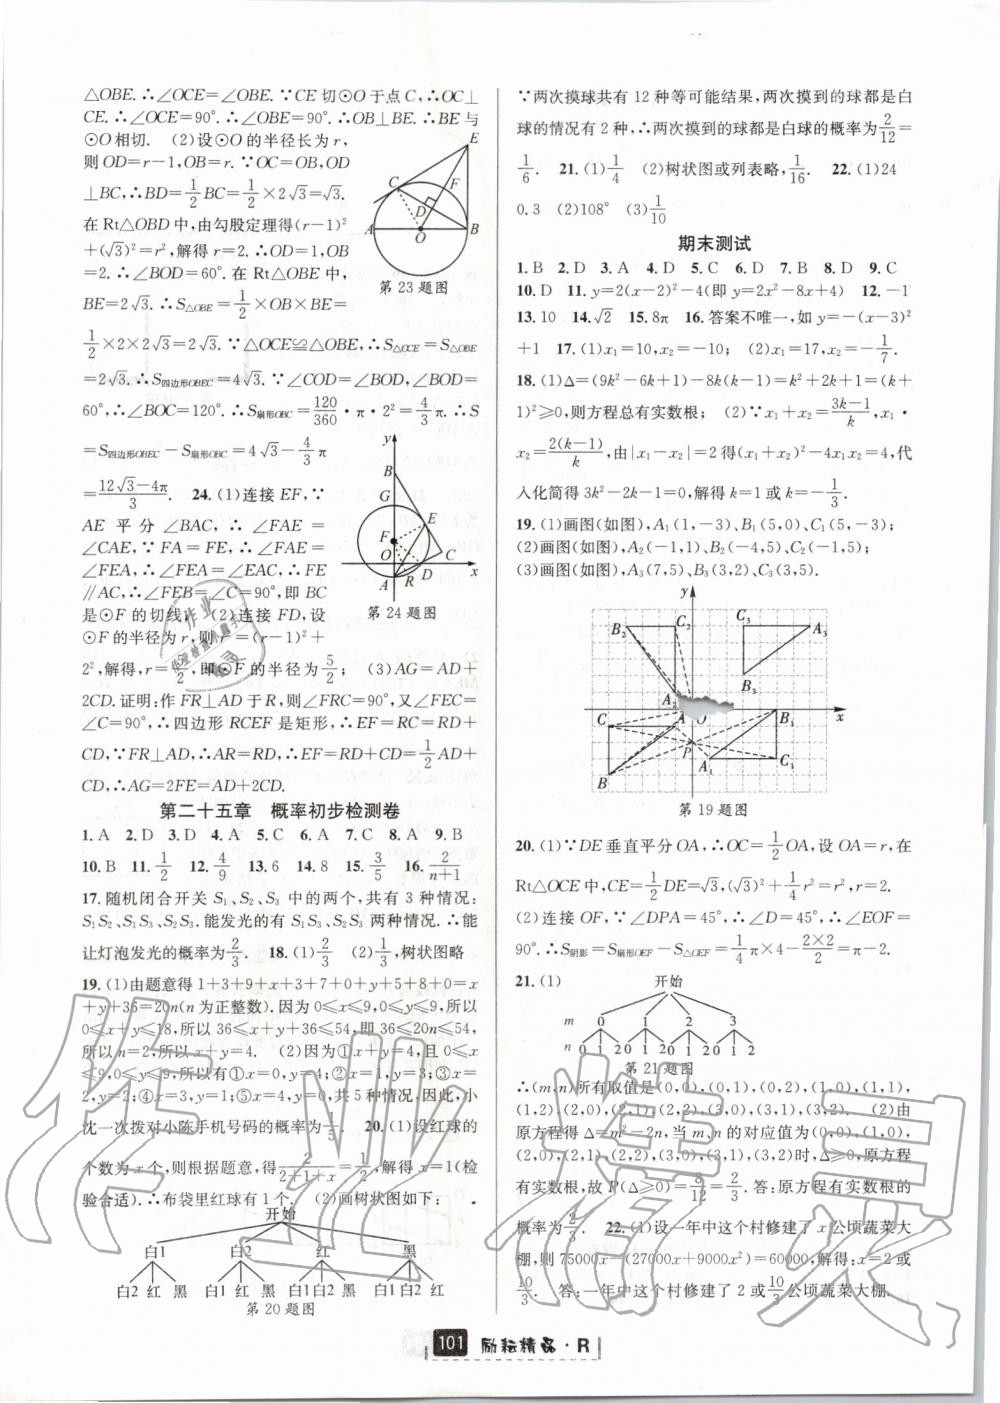 △OBE.∴∠OCE=∠OBE.∵CE切⊙O于点C,∴OC⊥
CE.∴∠OCE=90°.∴∠OBE=90°.∴OB⊥BE.∴BE与
⊙O相切. (2)设⊙O的半径长为r,
则OD=r-1,OB=r.∵OC=OB,OD
⊥BC,∴BD=1/2BC=1/2×2√3=√3.
在Rt△OBD中,由勾股定理得(r-1)²
+(√3)²=r²,解得r=2.∴OD=1,OB
=2.∴∠BOD=60°.在Rt△OBE中,
BE=2√3.∴S△OBE=1/2×OB×BE=
1/2×2×2√3=2√3.∵△OCE≌△OBE,∴S△OCE=S△OBE
=2√3.∴S四边形OBEC=4√3.∵∠COD=∠BOD,∠BOD=
60°,∴∠BOC=120°.∴S扇形OBC=120/360·π·2²=4/3π.∴S
=S四边形OBEC-S扇形OBC=4√3-4/3π
=(12√3-4π)/3. 24.(1)连接EF,∵
AE平分∠BAC,∴∠FAE=
∠CAE,∵FA=FE,∴∠FAE=
∠FEA,∴∠FEA=∠EAC,∴FE
∥AC,∴∠FEB=∠C=90°,即BC
是⊙F的切线; (2)连接FD,设
⊙F的半径为r,则r²=(r-1)²+
2²,解得,r=5/2,即⊙F的半径为5/2; (3)AG=AD+
2CD.证明:作FR⊥AD于R,则∠FRC=90°,又∠FEC=
∠C=90°,∴四边形RCEF是矩形,∴EF=RC=RD+
CD,∵FR⊥AD,∴AR=RD,∴EF=RD+CD=1/2AD+
CD,∴AG=2FE=AD+2CD.
E
C
F
D
A
O
B
第23题图
y
B
G
E
F
C
O
D
A
R
x
第24题图
第二十五章 概率初步检测卷
1.A 2.D 3.D 4.A 5.C 6.A 7.C 8.A 9.B
10.B 11.1/2 12.4/9 13.6 14.8 15.3/5 16.2/(n+1)
17.随机闭合开关S₁、S₂、S₃中的两个,共有3种情况:
S₁S₂、S₁S₃、S₂S₃.能发光的有S₁S₃、S₂S₃两种情况.∴能
让灯泡发光的概率为2/3. 18.(1)2/3 (2)1/3,树状图略
19.(1)由题意得1+3+9+x+3+7+0+y+5+8+0=x
+y+36=20n(n为正整数).因为0≤x≤9,0≤y≤9,所以
0≤x+y≤18,所以36≤x+y+36≤54,即36≤20n≤54,
所以n=2,所以x+y=4. (2)因为①x+y=4,且0≤x
≤9,0≤y≤9,所以有①x=0,y=4;②x=1,y=3;③x=
2,y=2;④x=3,y=1;⑤x=4,y=0,共5种情况,因此,小
沈一次拨对小陈手机号码的概率为1/5. 20.(1)设红球的
个数为x个,则根据题意,得2/(2+1+x)=1/2,解得x=1(检
验合适).∴布袋里红球有1个. (2)画树状图如下:
开始
白1 白2 红 黑
白2 红 黑 白1 红 黑 白1白2 黑 白1白2 红
第20题图
∵两次摸球共有12种等可能结果,两次摸到的球都是白
球的情况有2种,∴两次摸到的球都是白球的概率为2/12=
1/6. 21.(1)1/4 (2)树状图或列表略,1/16. 22.(1)24
0.3 (2)108° (3)1/10
期末测试
1.B 2.D 3.A 4.D 5.C 6.D 7.B 8.D 9.C
10.D 11.y=2(x-2)²-4(即y=2x²-8x+4) 12.-1
13.10 14.√2 15.8π 16.答案不唯一,如y=-(x-3)²
+1 17.(1)x₁=10,x₂=-10; (2)x₁=17,x₂=-1/7.
18.(1)Δ=(9k²-6k+1)-8k(k-1)=k²+2k+1=(k+
1)²≥0,则方程总有实数根; (2)∵x₁+x₂=(3k-1)/k,x₁·
x₂=2(k-1)/k,由|x₁-x₂|=2得(x₁+x₂)²-4x₁x₂=4,代
入化简得3k²-2k-1=0,解得k=1或k=-1/3.
19.(1)画图(如图),A₁(1,-3)、B₁(5,0)、C₁(5,-3);
(2)画图(如图),A₂(-1,1)、B₂(-4,5)、C₂(-1,5);
(3)画图(如图),A₃(7,5)、B₃(3,2)、C₃(3,5).
y
B₂ C₂ C₃ A₃
B₃
A₂
C A O B₁ x
P
A₁ C₁
B
第19题图
20.(1)∵DE垂直平分OA,∴OC=1/2OA,设OA=r,在
Rt△OCE中,CE=1/2DE=√3,(√3)²+1/4r²=r²,r=2.
(2)连接OF,∵∠DPA=45°,∴∠D=45°,∴∠EOF=
90°.∴S阴影=S扇形OEF-S△OEF=1/4π×4-(2×2)/2=π-2.
21.(1)
开始
m 0 1 2 3
n 0 1 2 0 1 2 0 1 2 0 1 2
第21题图
∴(m,n)所有取值是(0,0),(0,1),(0,2),(1,0),(1,1),
(1,2),(2,0),(2,1),(2,2),(3,0),(3,1),(3,2). (2)由
原方程得Δ=m²-2n,当m、n的对应值为(0,0),(1,0),
(2,0),(2,1),(2,2),(3,0),(3,1),(3,2)时,Δ≥0,原方程
有实数根,故P(Δ≥0)=8/12=2/3.答:原方程有实数根的
概率为2/3. 22.(1)设一年中这个村修建了x公顷蔬菜大
棚,则75000x-(27000x+9000x²)=60000,解得:x=2或
10/3. 答:一年中这个村修建了2或10/3公顷蔬菜大棚.
101 励耘精品·R
作业精灵